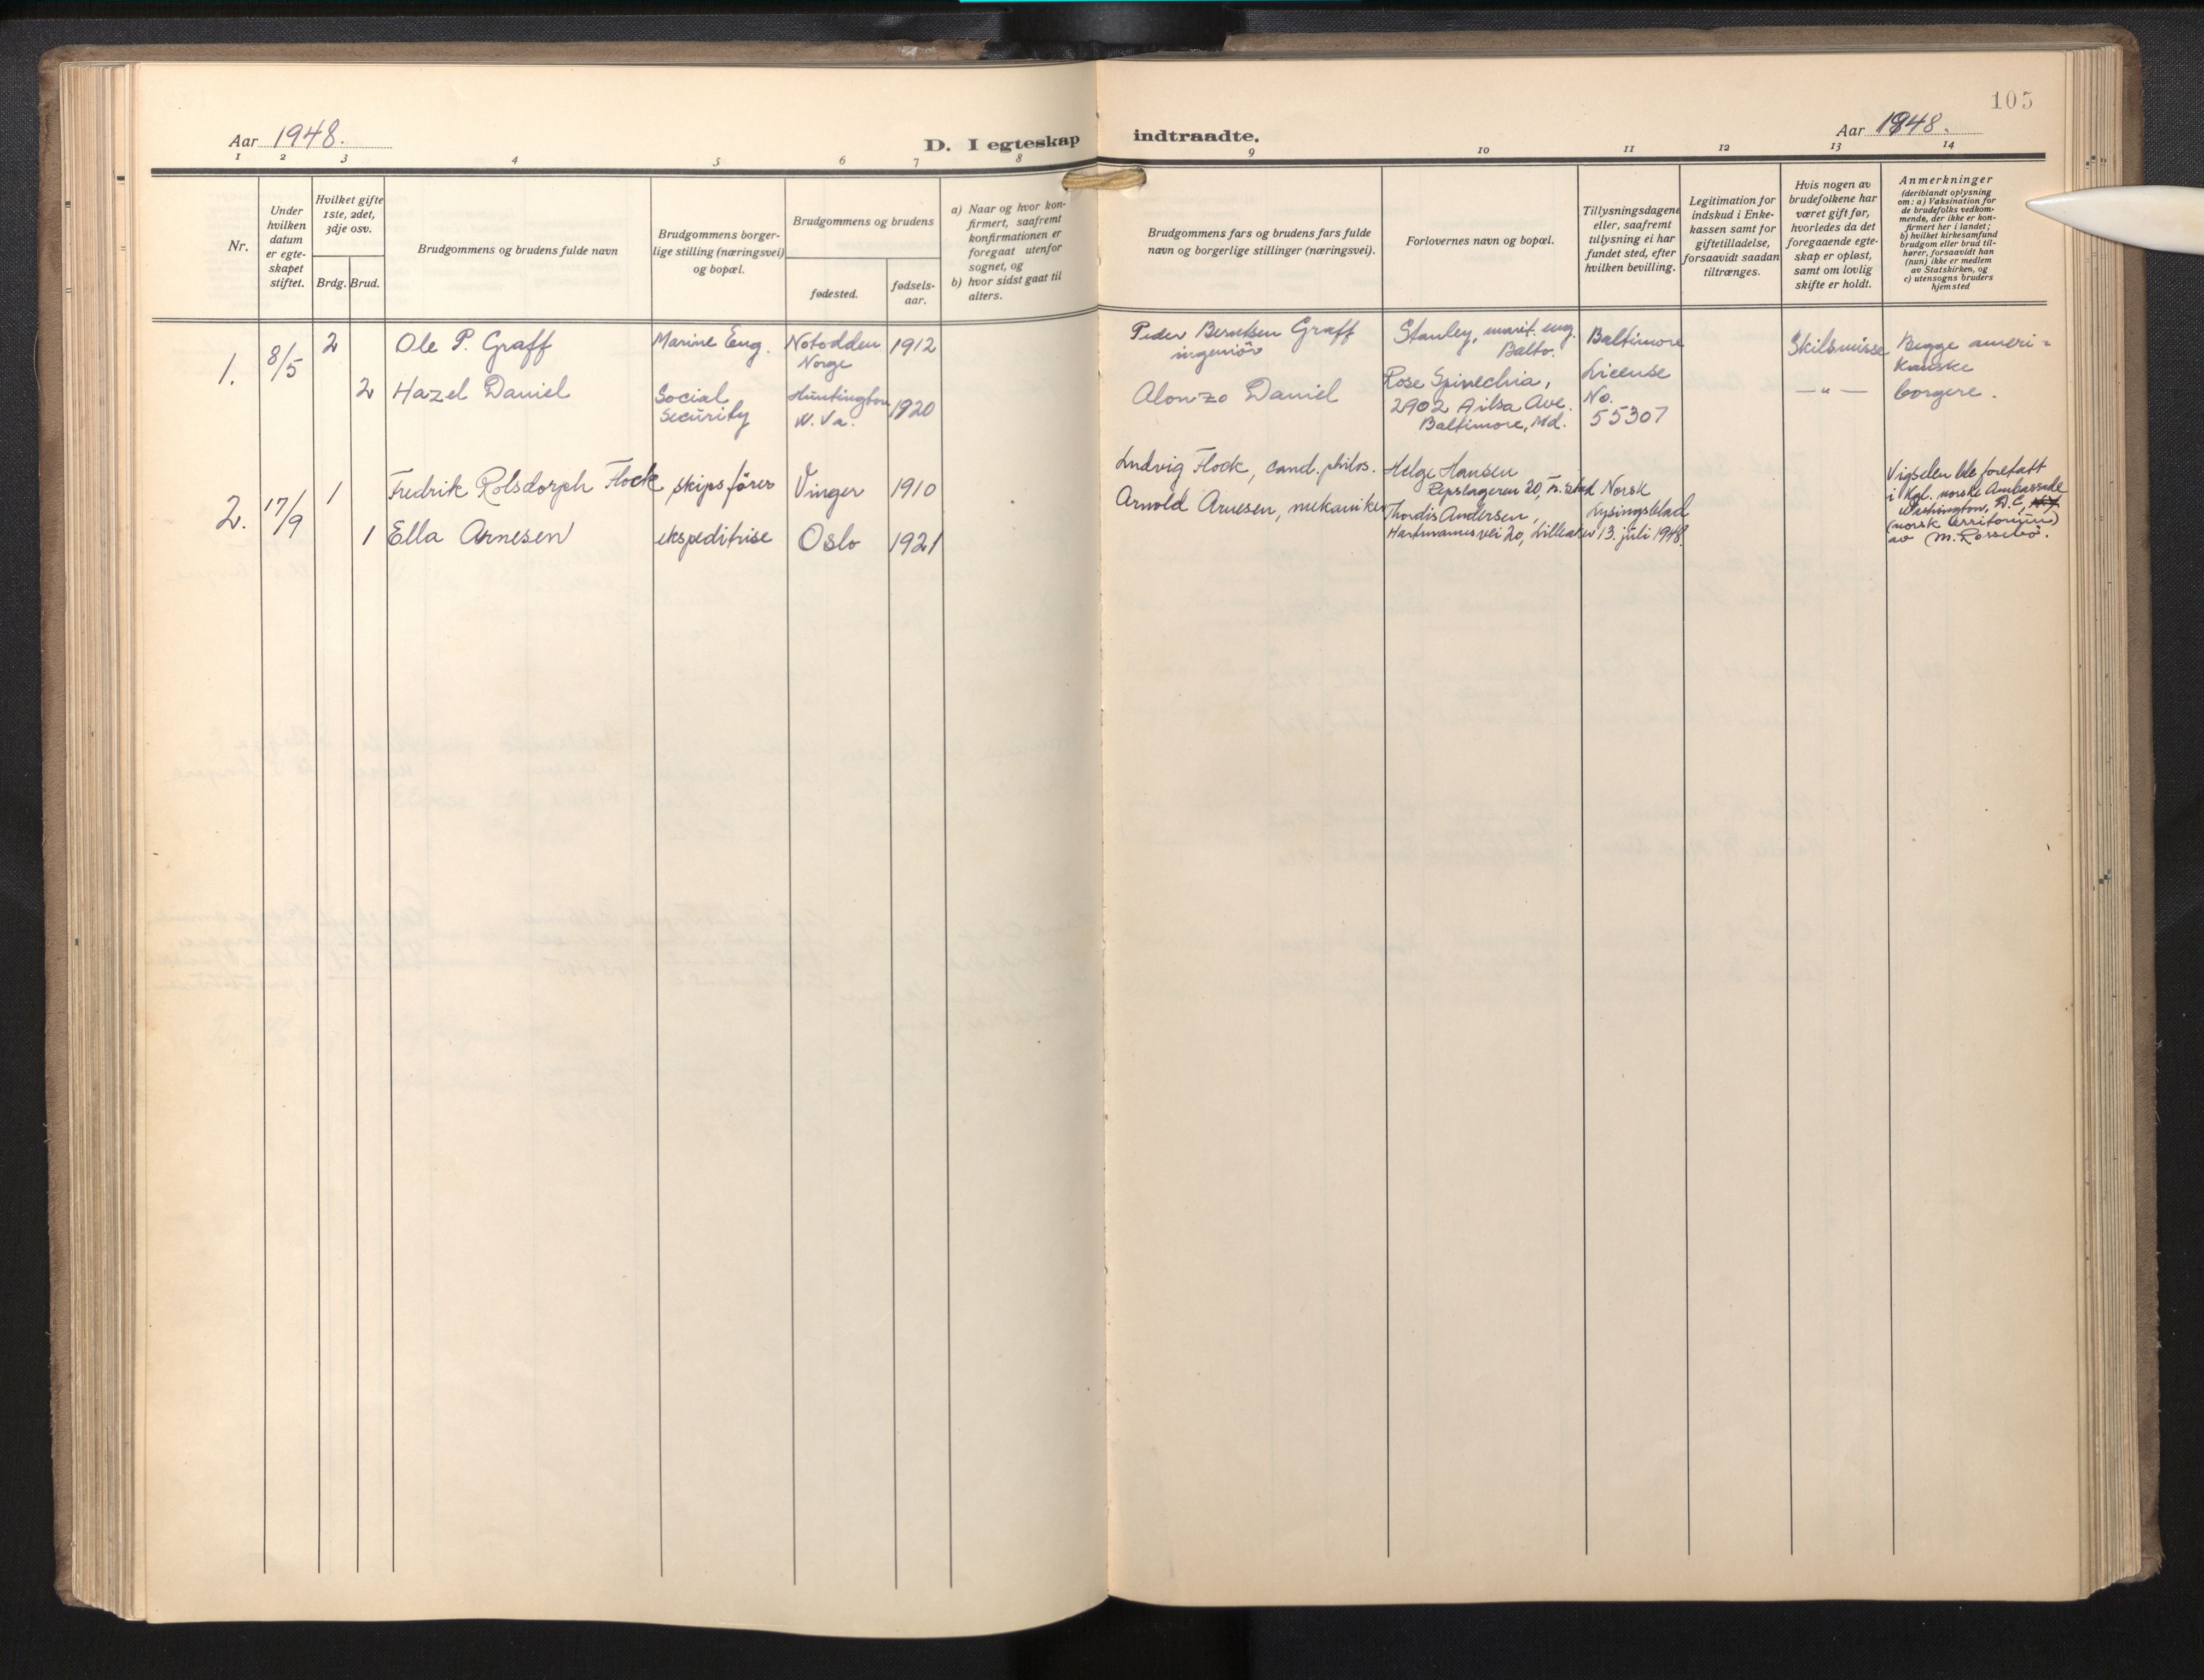 105
Aar 1948.
D. I egteskap indtraadte.
Aar 1948.
1 2 3 4 5 6 7 8 9 10 11 12 13 14
Nr.
Under
hvilken
datum
er egte-
skapet
stiftet.
Hvilket gifte
1ste, 2det,
3dje osv.
Brdg. Brud.
Brudgommens og brudens fulde navn
Brudgommens borger-
lige stilling (næringsvei)
og bopæl.
Brudgommens og brudens
fødested.
fødsels-
aar.
a) Naar og hvor kon-
firmert, saafremt
konfirmationen er
foregaat utenfor
sognet, og
b) hvor sidst gaat til
alters.
Brudgommens fars og brudens fars fulde
navn og borgerlige stillinger (næringsvei).
Forlovernes navn og bopæl.
Tillysningsdagene
eller, saafremt
tillysning ei har
fundet sted, efter
hvilken bevilling.
Legitimation for
indskud i Enke-
kassen samt for
giftetilladelse,
forsaavidt saadan
tiltrænges.
Hvis nogen av
brudefolkene har
været gift før,
hvorledes da det
foregaaende egte-
skap er opløst,
samt om lovlig
skifte er holdt.
Anmerkninger
(deriblandt oplysning
om: a) Vaksination for
de brudefolks vedkom-
mende, der ikke er kon-
firmert her i landet;
b) hvilket kirkesamfund
brudgom eller brud til-
hører, forsaavidt han
(hun) ikke er medlem
av Statskirken, og
c) utensogns bruders
hjemsted
1.
8/5
2
Ole P. Graff
Marine Eng.
Notodden
Norge
1912
Peder Berntsen Graff
ingeniör
Stanley, marit. eng.
Balto.
Baltimore
License
No.
55307
Skilsmisse
Begge ameri-
kanske
borgere.
2
Hazel Daniel
Social
Security
Huntington
W. Va.
1920
Alonzo Daniel
Rose Spinechia,
2902 Ailsa Ave.
Baltimore, Md.
— " —
2.
17/9
1
Fredrik Rolsdorph Flock
skipsförer
Vinger
1910
Ludvig Flock, cand. philos.
Helge Hansen
Repslageren 20,
Norsk
Lysingsblad
13. juli 1948.
Vigselen ble foretatt
i Kgl. norske Ambassade
Washington, D.C.,
(norsk territorium)
av M. Rossebö.
1
Ella Arnesen
ekspeditrise
Oslo
1921
Arnold Arnesen, mekaniker
Thordis Andersen,
Hartmanns vei 20, Lilleaker